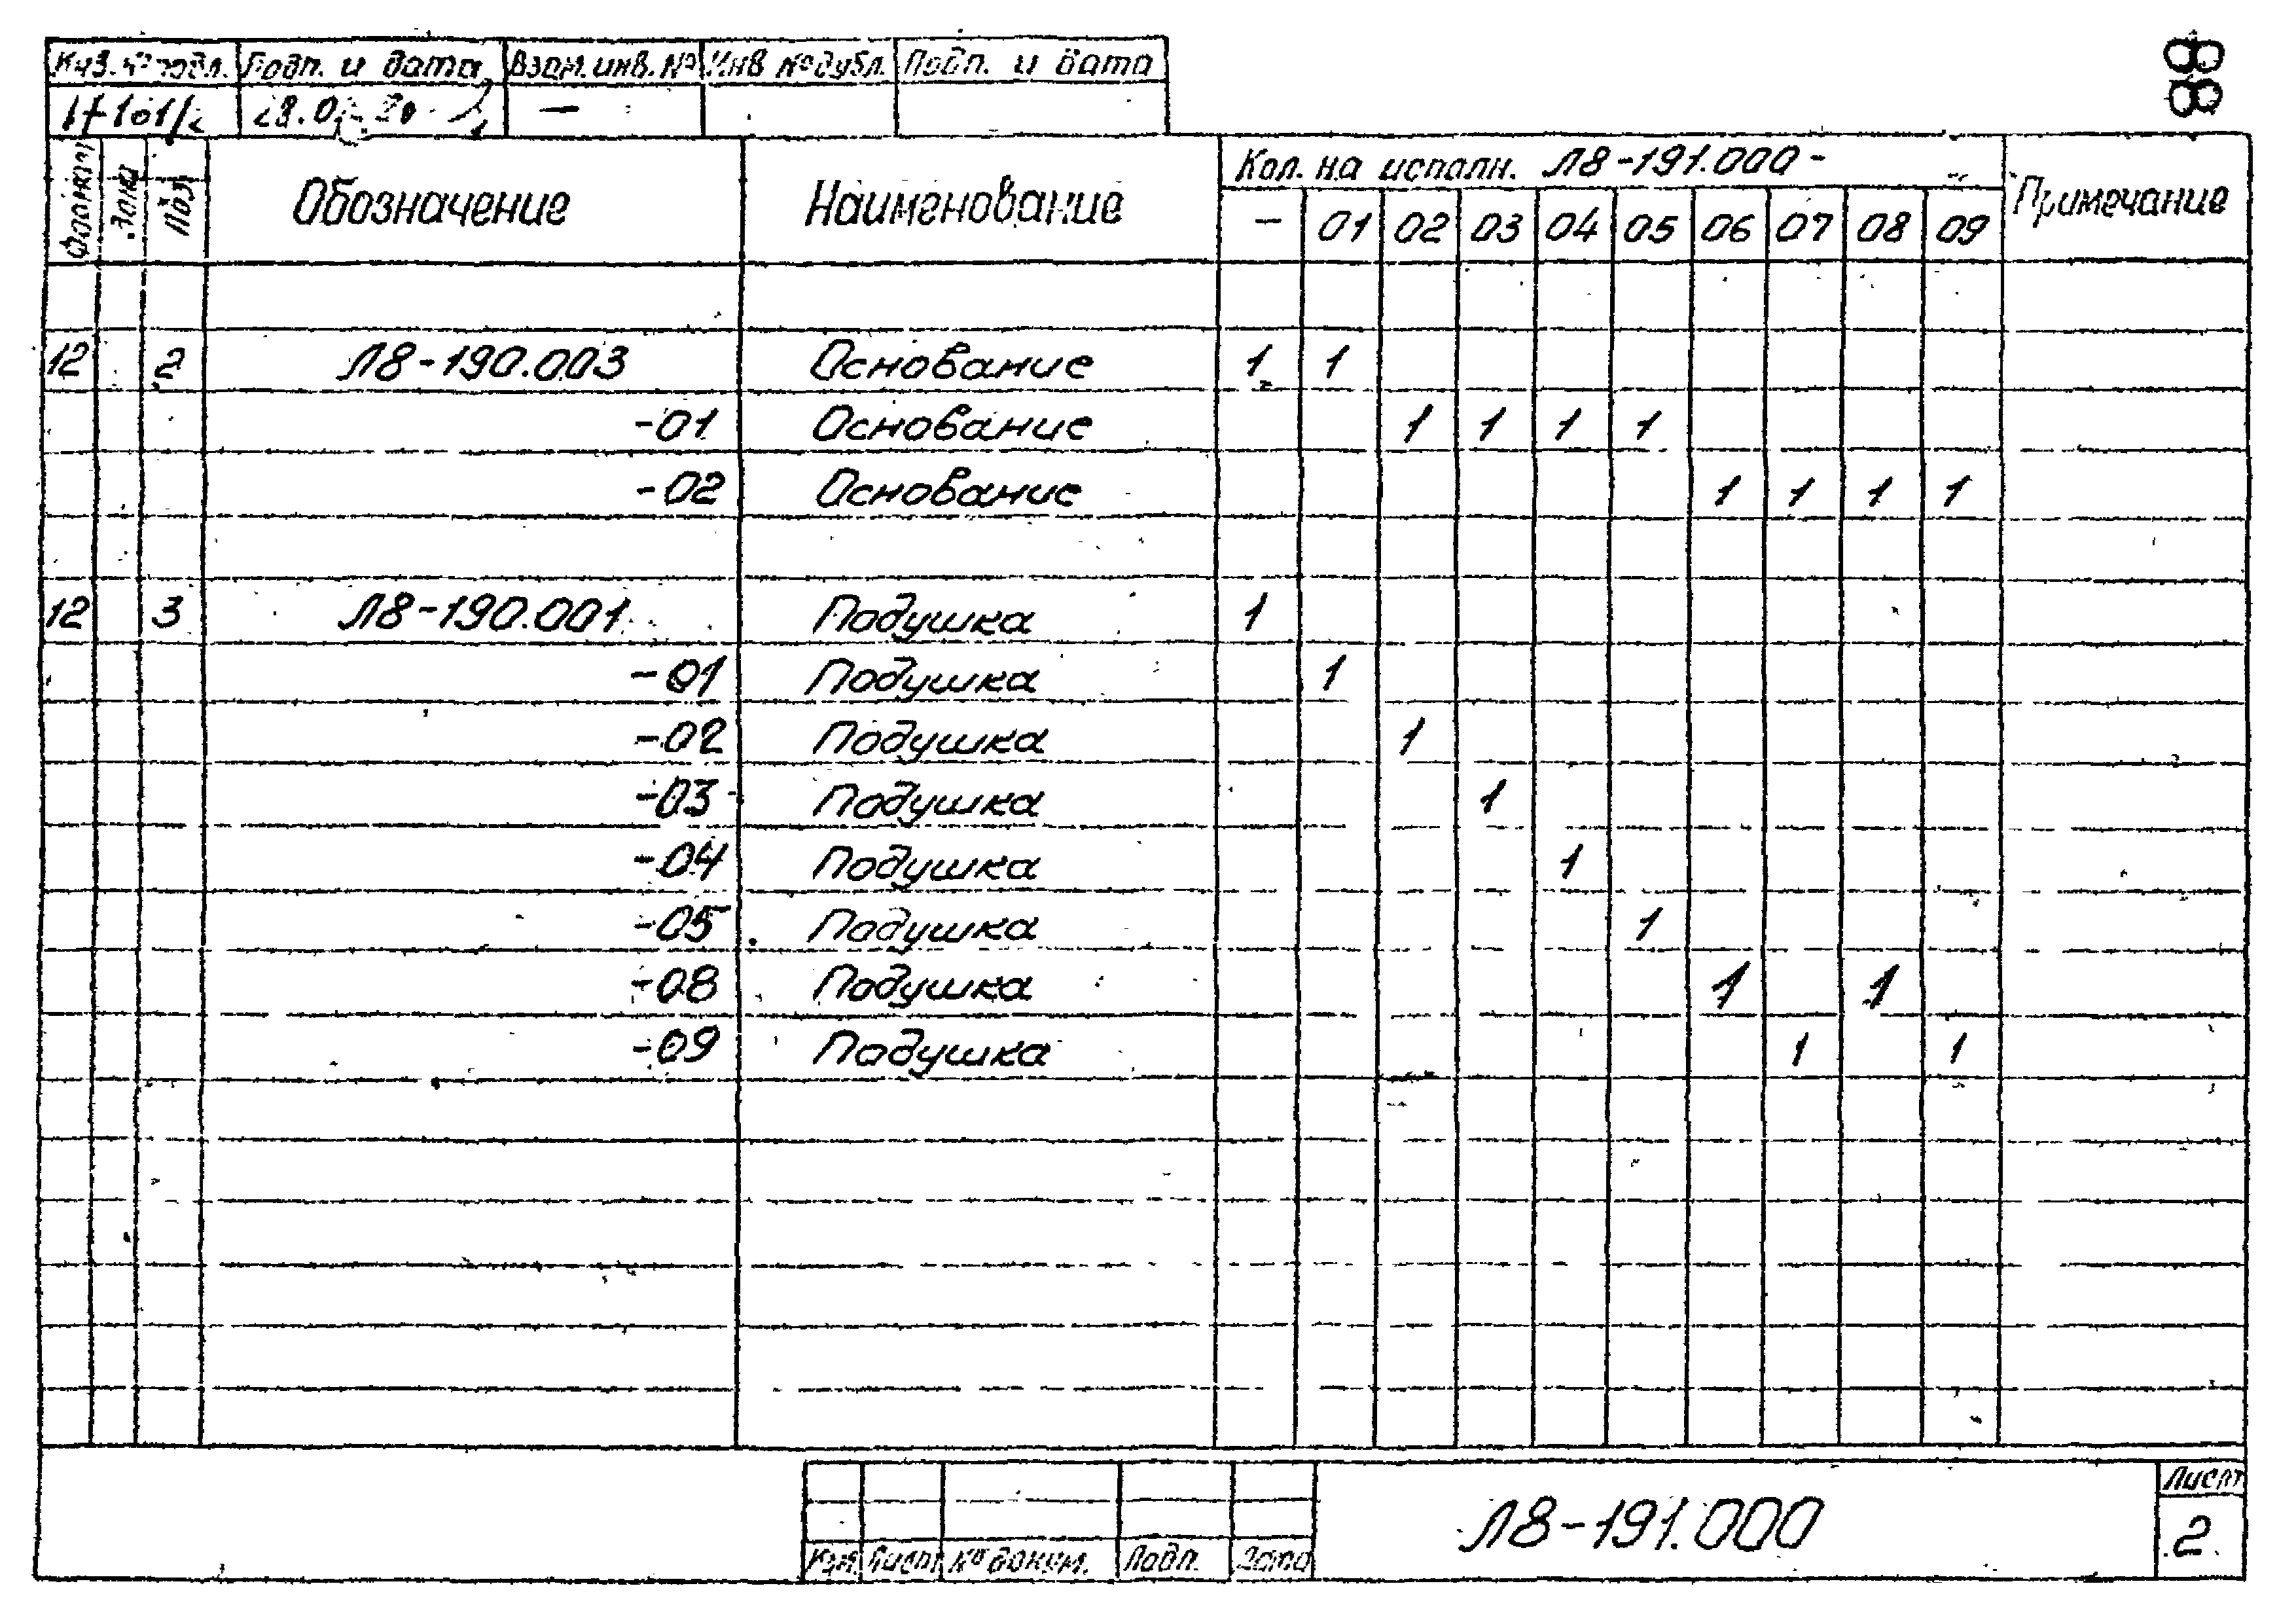 Инв. № подл. Подп. и дата Взам. инв. № Инв № дубл. Подп. и дата
—
88
Формат Зона Поз Обозначение Наименование Кол. на исполн. Л8-191.000- Примечание
- 01 02 03 04 05 06 07 08 09
12 2 Л8-190.003 Основание 1 1
-01 Основание 1 1 1 1
-02 Основание 1 1 1 1
12 3 Л8-190.001 Подушка 1
-01 Подушка 1
-02 Подушка 1
-03 Подушка 1
-04 Подушка 1
-05 Подушка 1
-08 Подушка 1 1
-09 Подушка 1 1
Изм. Лист № докум. Подп. Дата
Л8-191.000
Лист
2